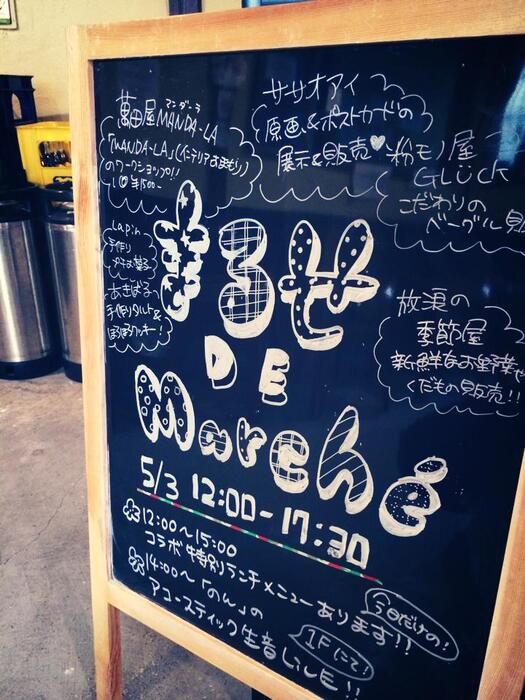 マンダーラ
萬田屋MANDA-LA
「MANDA-LA」
のワークショップ!!
ササオアイ
原画&ポストカードの
展示&販売♥
粉モノ屋
GLÜCK
こだわりの
ベーグル販
Lapin
手作り
プチお菓子
あきぱる
手作りタルト&
ほろほろクッキー!
放浪の
季節屋
新鮮なお野菜や
くだもの販売!!
まるせ
DE
Marché
5/3 12:00-17:30
12:00〜15:00
コラボ特別ランチメニューあります!!
今日だけの!
14:00〜「のん」の
アコースティック生音LIVE!!
1Fにて!